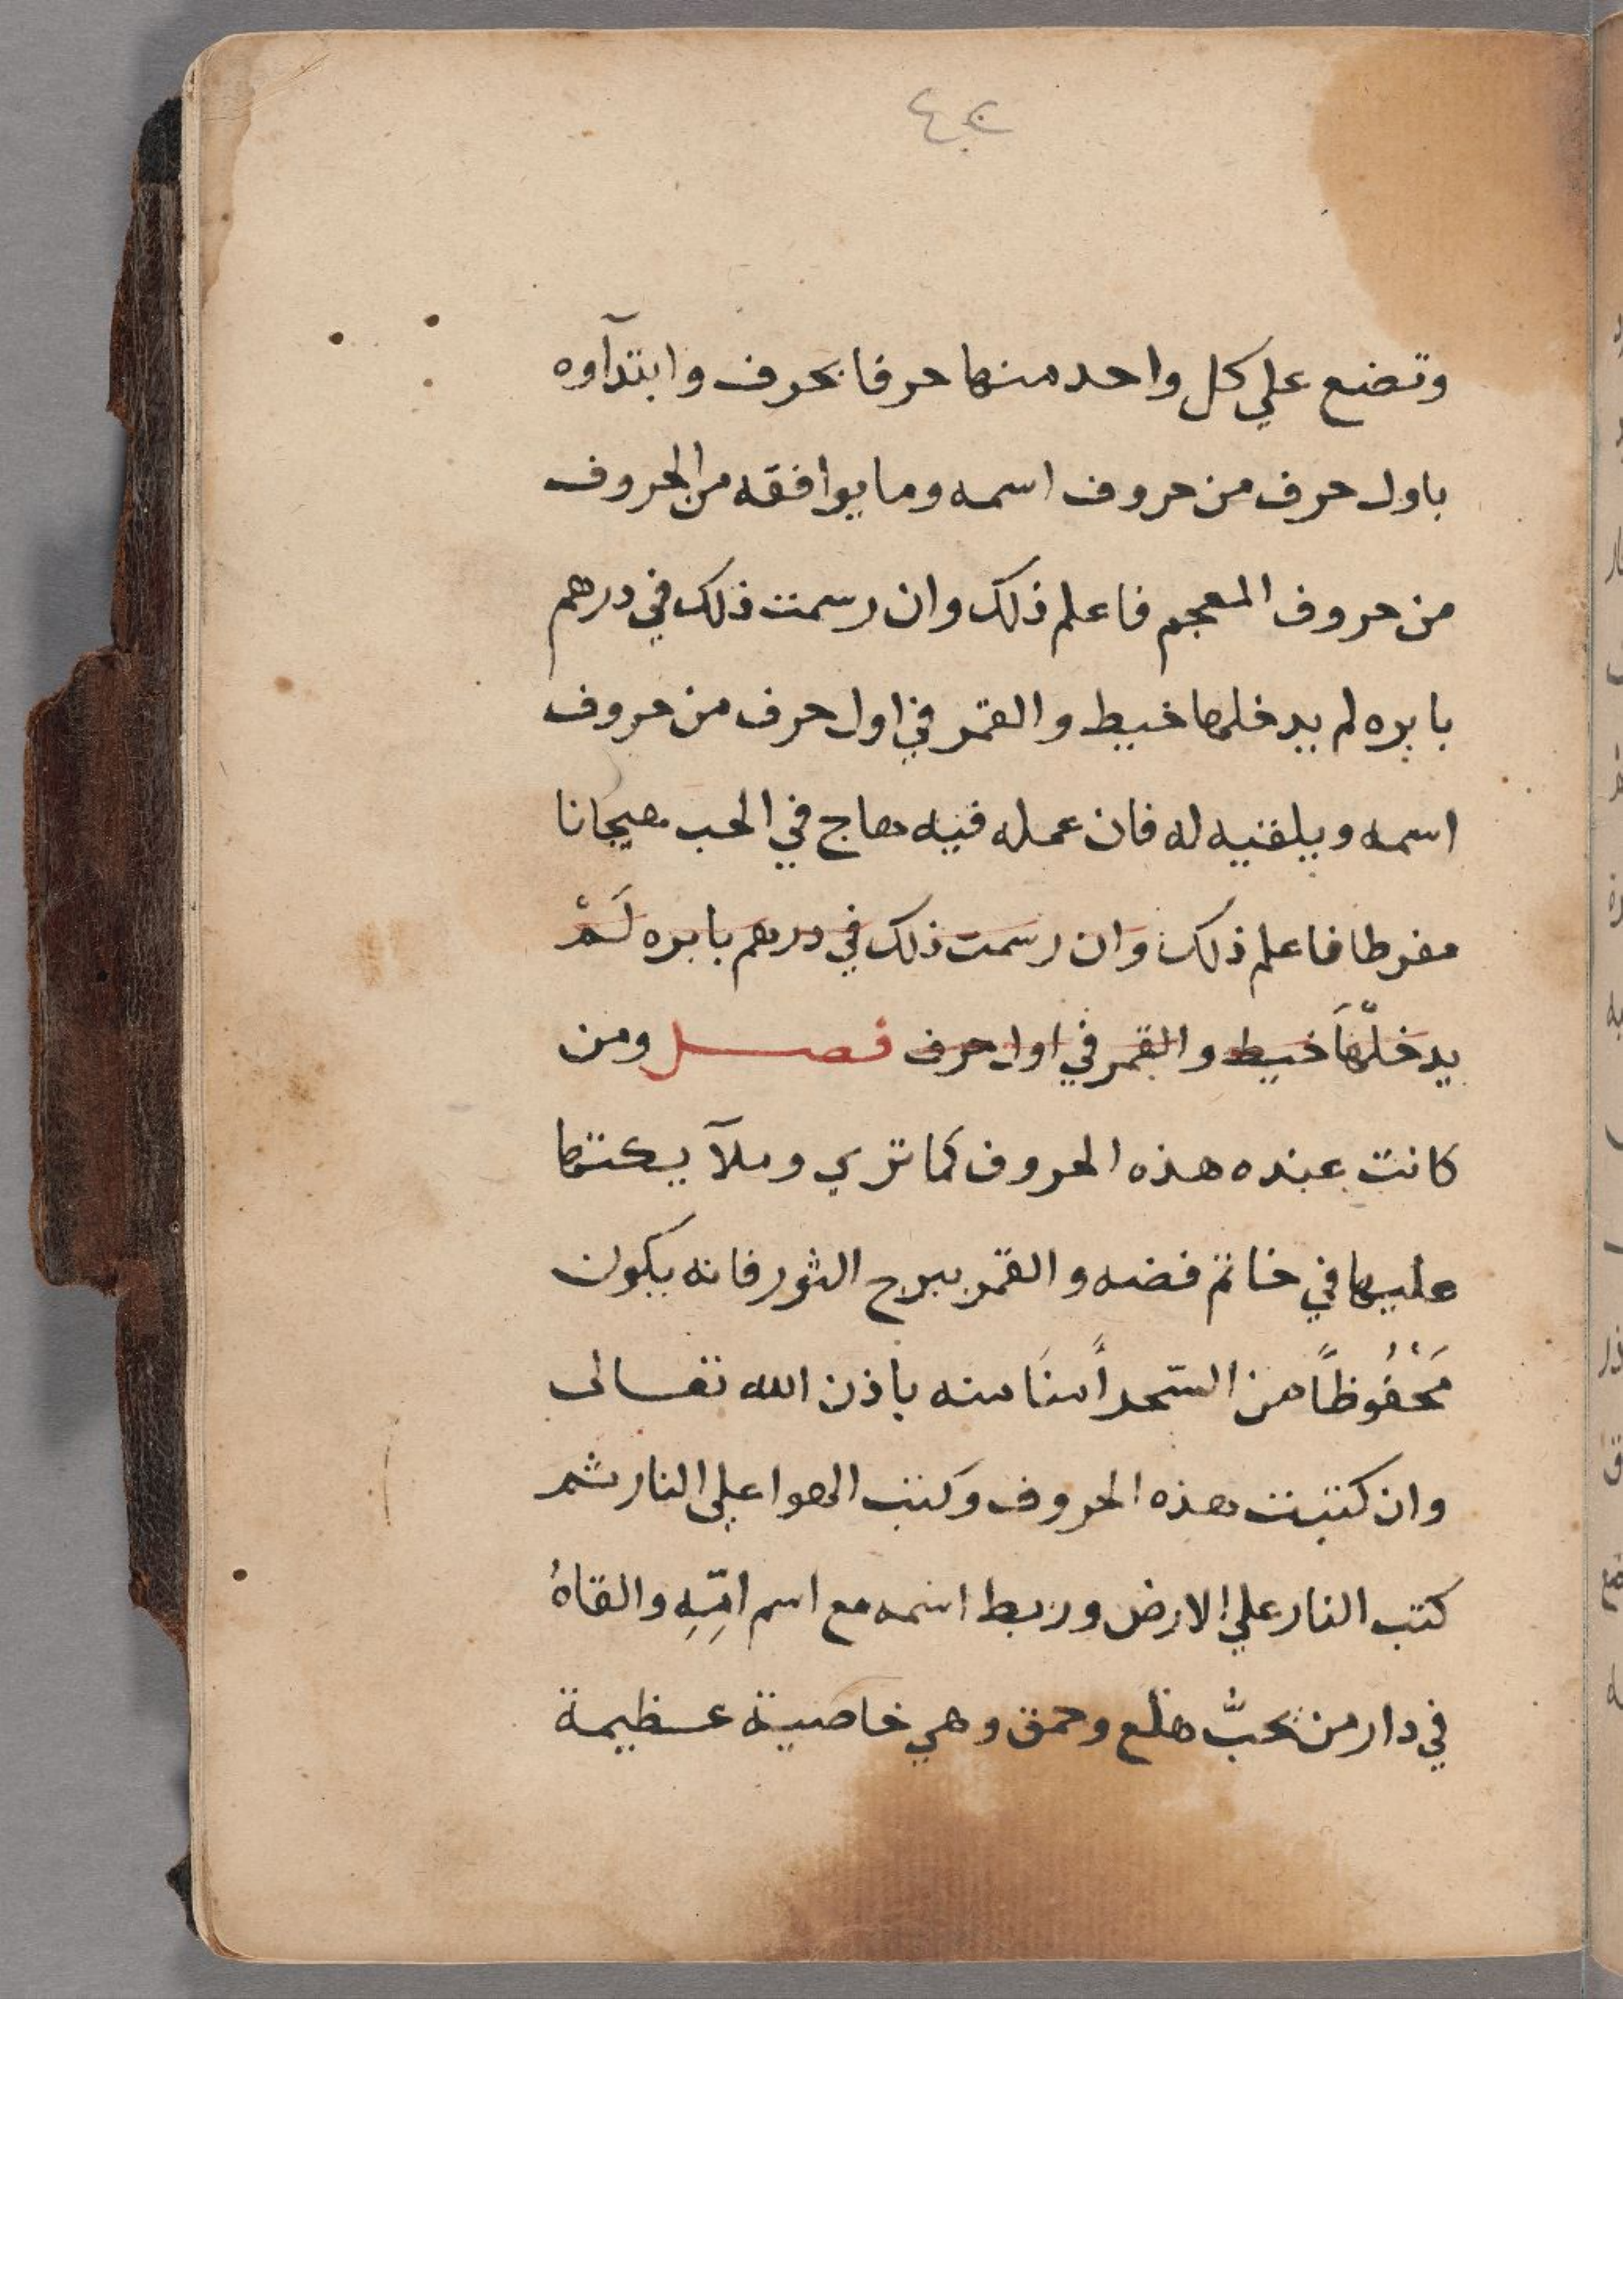 وتضع علي كل واحد منها حرفا بحرف وابتدآوه
باول حرف من حروف اسمه وما يوافقه من الحروف
من حروف المعجم فاعلم ذلك وان رسمت ذلك في درهم
بابره لم يدخلها خيط والقمر في اول حرف من حروف
اسمه ويلقيه له فان عمله فيه هاج في الحب هيجانا
مفرطا فاعلم ذلك وان رسمت ذلك في درهم بابره لَمْ
يدخلّهَا خيط والقمر في اول حرف فصل ومن
كانت عنده هذه الحروف كما تري وملآيكتها
عليها في خاتم فضه والقمر ببرج الثور فانه يكون
مَحْفُوظاً من السّحر أمنَا منه باذن الله تعالى
وان كتبت هذه الحروف وكتب الهوا علي النار ثم
كتب النار علي الارض وربط اسمه مع اسم امِّهِ والقاهُ
في دار من يحبُّ هلع وحمق وهي خاصية عظيمة